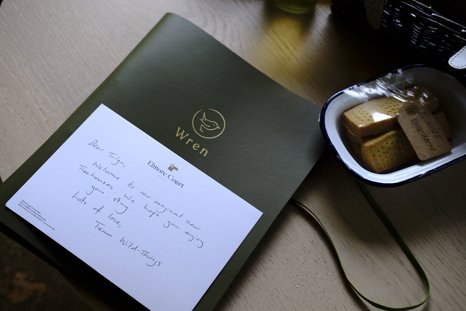 Wren
Elmore Court
Dear Tolga,
Welcome to our magical new
Treehouses. We hope you enjoy
your stay.
Lots of love,
Team Wild-Things